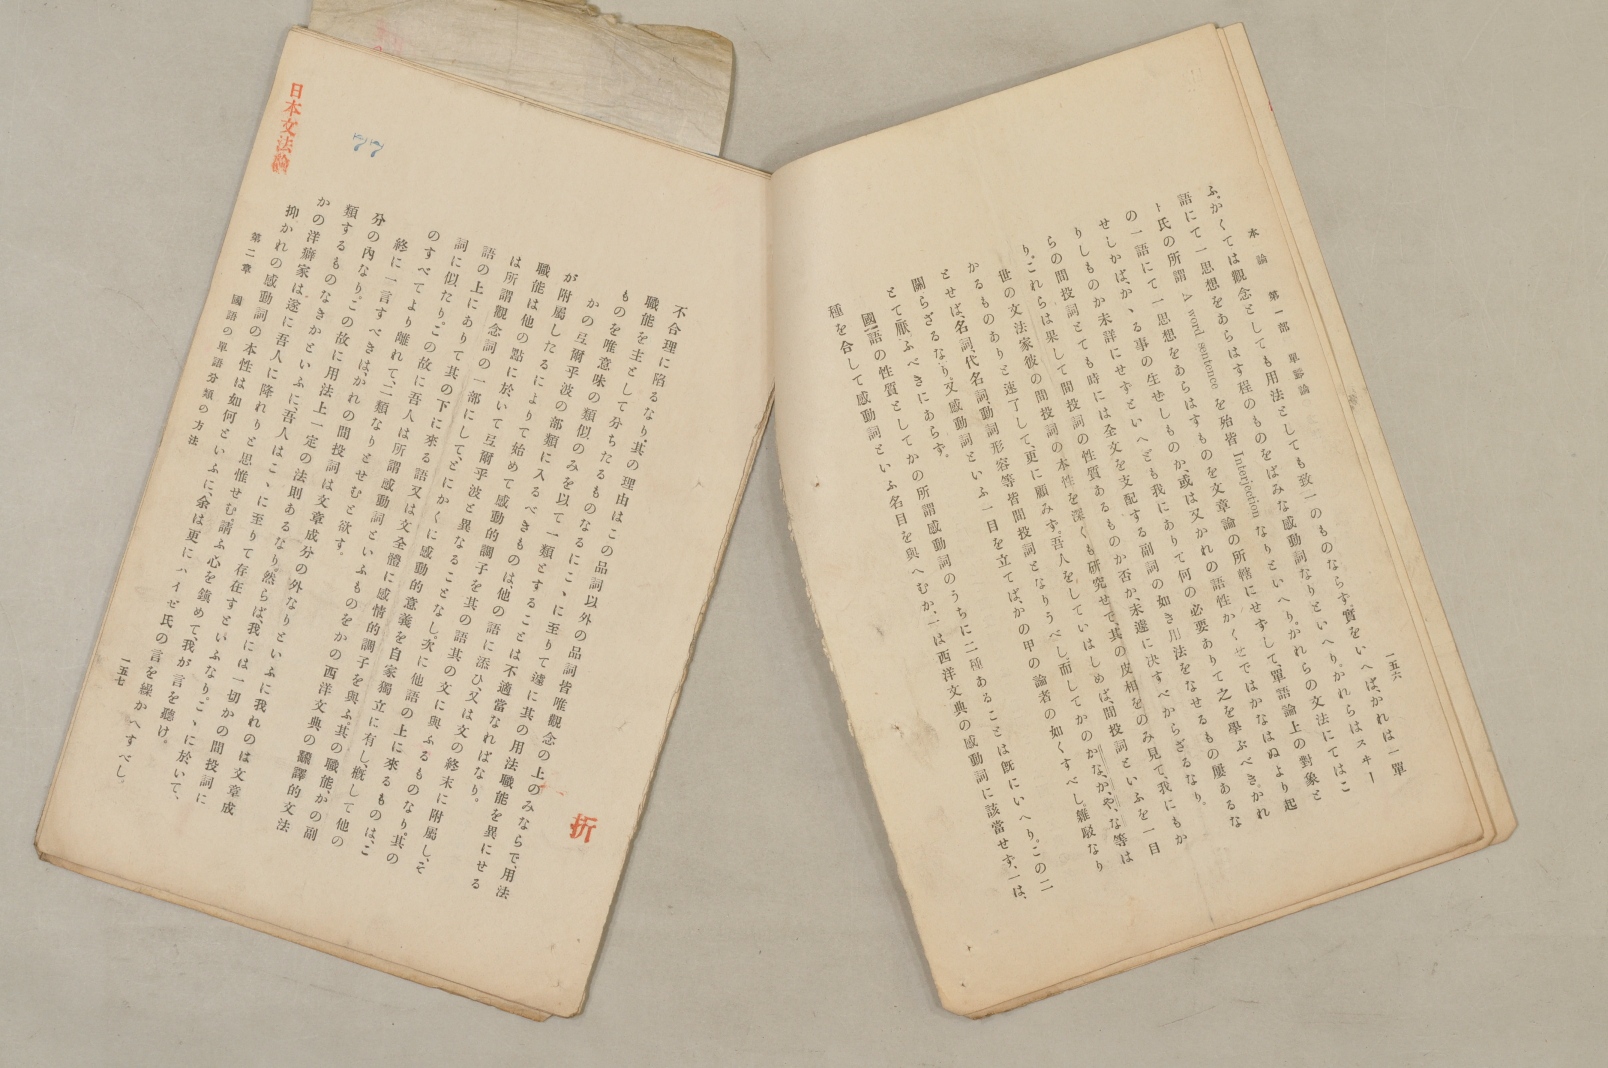 本論 第一部 單語論
一五六
ふ。かくては觀念としても用法としても致一のものならず。實をいへば、かれは一單
語にて一思想をあらはす程のものをばみな感動詞なりといへり。かれらはスヰー
ト氏の所謂 A word sentence を殆皆 Interjection なりといへり。かれらの文法にてはこ
の一語にて一思想をあらはすものを文章論の所轄にせずして、單語論上の對象と
せしかば、かゝる事の生ぜしものか、或は又かれの語性かくせではかなはぬより起
りしものか未詳にせずといへども我にありて何の必要ありて之を學ぶべき。かれ
らの間投詞とても時には全文を支配する副詞の如き用法をなせるもの屢あるな
り。これらは果して間投詞の性質あるものか否か、未遽に決すべからざるなり。
世の文法家彼の間投詞の本性を深くも研究せで、其の皮相をのみ見て、我にもか
かるものありと速了して、更に顧みず。吾人をしていはしめば、間投詞といふを一目
とせば、名詞、代名詞、動詞、形容等皆間投詞となりうべし。而してかのかな、か、や、な等は
關らざるなり。又感動詞といふ一目を立てば、かの甲の論者の如くすべし。雜駁なり
とて厭ふべきにあらず。
國語の性質としてかの所謂感動詞のうちに二種あることは既にいへり。この二
種を合して感動詞といふ名目を與へむか、一は西洋文典の感動詞に該當せず、一は、
不合理に陷るなり。其の理由はこの品詞以外の品詞皆唯觀念の上のみならで、用法
職能を主として分ちたるものなるにこゝに至りて遽に其の用法職能を異にせる
ものを唯意味の類似のみを以て一類とすることは不適當なればなり。
かの弖爾乎波の部類に入るべきものは、他の語に添ひ、又は文の終末に附屬し、そ
が附屬したるによりて始めて感動的調子を其の語其の文に與ふるものなり。其の
職能は他の點に於いて弖爾乎波と異なることなし。次に他語の上に來るものは、こ
は所謂觀念詞の一部にして、とにかくに感動的意義を自家獨立に有し、概して他の
語の上にありて其の下に來る語又は文全體に感情的調子を與ふ。其の職能、かの副
詞に似たり。この故に吾人は所謂感動詞といふものをかの西洋文典の飜譯的文法
のすべてより離れて、二類なりとせむと欲す。
終に一言すべきは、かれの間投詞は文章成分の外なりといふに我れのは文章成
分の內なり。この故に用法上一定の法則あるなり。然らば、我には一切かの間投詞に
類するものなきかといふに、吾人はこゝに至りて存在すといふなり。こゝに於いて、
かの洋癖家は遂に吾人に降れりと思惟せむ。請ふ心を鎭めて、我が言を聽け。
抑かれの感動詞の本性は如何といふに、余は更にハイゼ氏の言を繰かへすべし。
第二章 國語の單語分類の方法
一五七
日本文法論
77
折